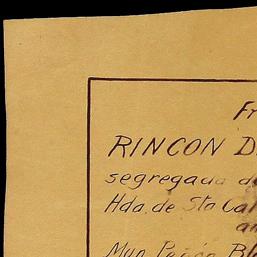 Fr
RINCON D
segregada d
Hda. de Sta Cal
an
Mun Peñón Bl